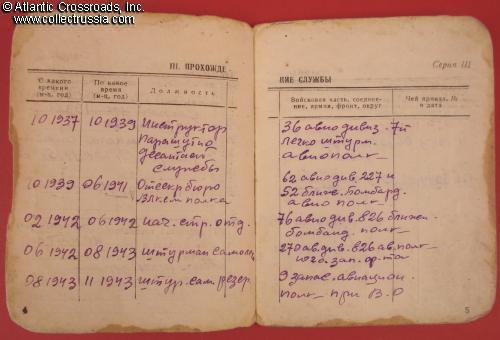 © Atlantic Crossroads, Inc.
www.collectrussia.com
III. ПРОХОЖДЕ
С какого времени (м-ц, год)
По какое время (м-ц, год)
Должность
10 1937
10 1939
Инструктор
парашутно
десантной
службы
10 1939
06 1941
Отсекр бюро
полка
02 1942
06 1942
нач. стр. отд.
06 1942
08 1943
штурман самол
08 1943
11 1943
штур. сам. резер.
4
Серия III
НИЕ СЛУЖБЫ
Войсковая часть, соединение, армия, фронт, округ
Чей приказ, № и дата
36 авиодивиз. 7й
легко штурм.
авиополк
62 авиодив 227 и
52 ближ. бомбард.
авио полк
76 авиодив 826 ближн.
бомбард. полк
270 ав.див. 826 ав. полк
зап. ф-та
9 запас. авиацион
полк при В.О
5